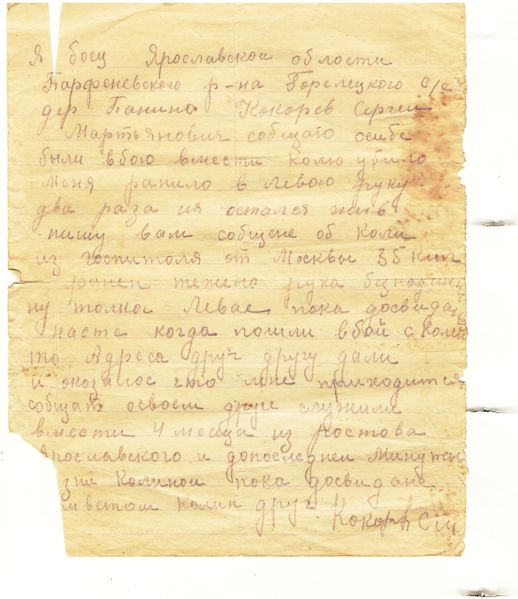 Я боец Ярославской области
Парфеневского р-на Горелецкого с/с
дер Панино Кокорев Сергей
Мартьянович собщаю осибе
были вбою вмести колю убило
меня ранило в левою руку
два раза ия остался жив
пишу вам собщене об Коли
из госпитоля от Москвы 35 кил
ранен тежело рука
ну толко левае пока досвидан
насте когда пошли вбой с Колей
то Адреса друг другу дали
и оказалос что мне приходится
собщат освоем друге служили
вмести 4 месеца из ростова
ярославского и допоследней минуты
зни Колиной пока досвидане
иветом колин друг Кокорев С М